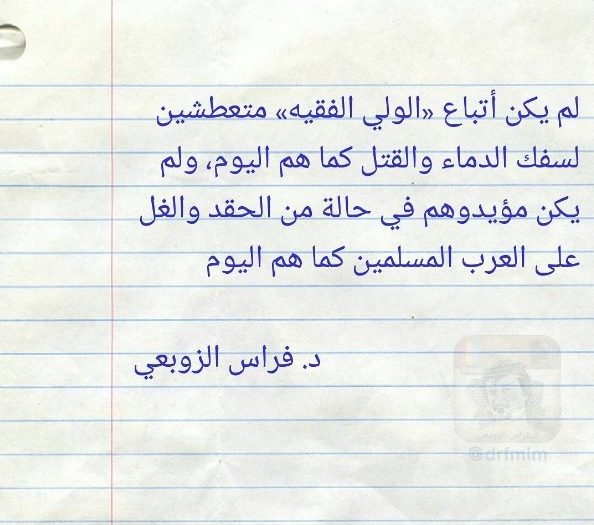 لم يكن أتباع «الولي الفقيه» متعطشين
لسفك الدماء والقتل كما هم اليوم، ولم
يكن مؤيدوهم في حالة من الحقد والغل
على العرب المسلمين كما هم اليوم
د. فراس الزوبعي
@drfmim